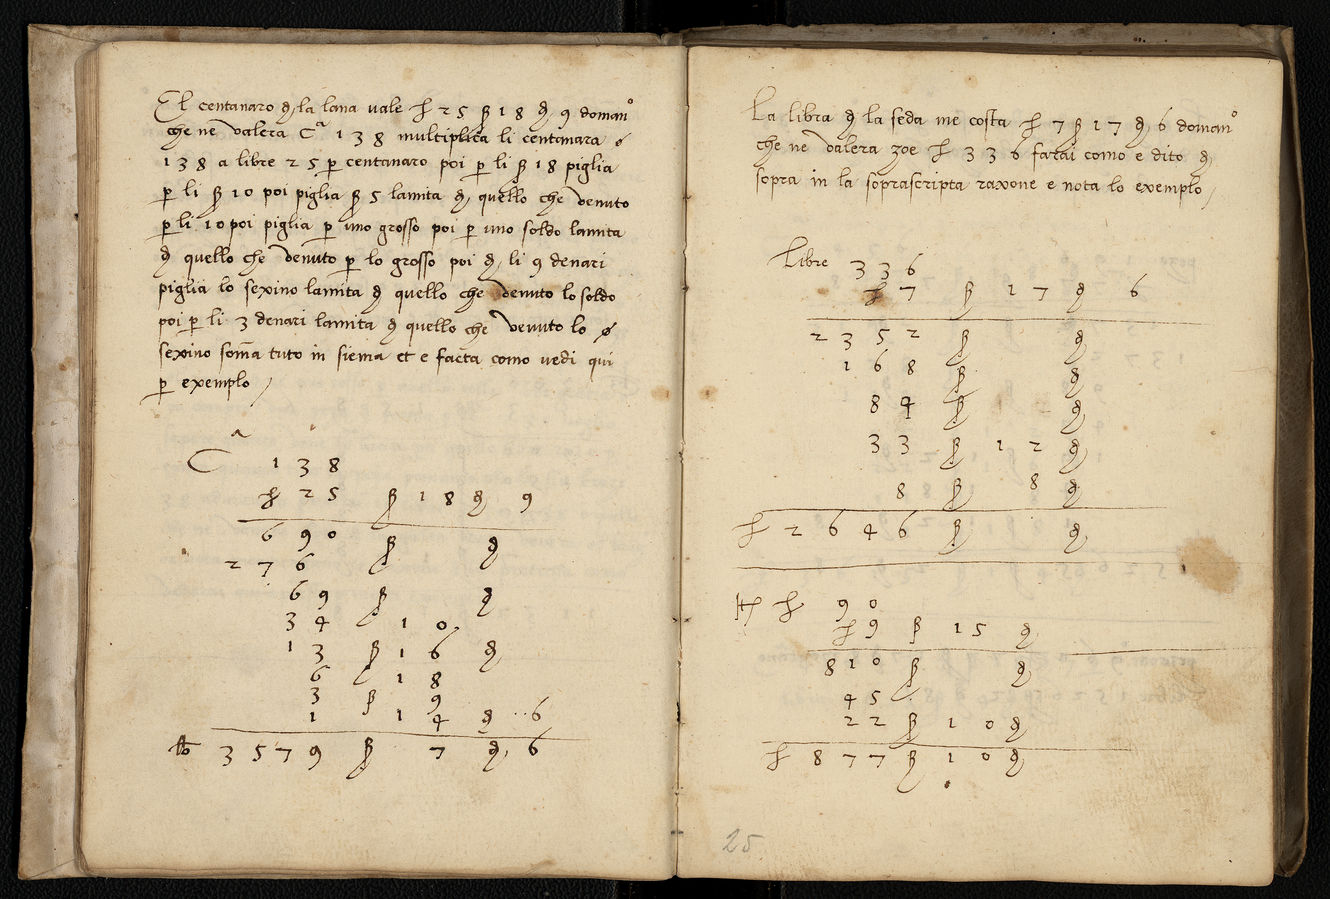 El centanaro ꝺ la lana vale £ 25 ß 18 ꝺ 9 domanº
che ne valera Cª 138 multiplica li centanara
138 a libre 25 ꝑ centanaro poi ꝑ li ß 18 piglia
ꝑ li ß 10 poi piglia ß 5 lamita ꝺ quello che venuto
ꝑ li 10 poi piglia ꝑ uno grosso poi ꝑ uno soldo lamita
ꝺ quello che venuto ꝑ lo grosso poi ꝺ li 9 denari
piglia lo sexino lamita ꝺ quello che venuto lo soldo
poi ꝑ li 3 denari lamita ꝺ quello che venuto lo
sexino soma tuto in siema et e facta como vedi qui
ꝑ exemplo /
Cª 138
£ 25 ß 18 ꝺ 9
690 ß ꝺ
276
69 ß ꝺ
34 10
13 ß 16 ꝺ
6 18
3 ß 9
1 14 ꝺ 6
3579 ß 7 ꝺ 6
La libra ꝺ la seda me costa £ 7 ß 17 ꝺ 6 domanº
che ne valera zoe £ 336 farai como e dito ꝺ
sopra in la soprascripta raxone e nota lo exemplo /
Libre 336
£ 7 ß 17 ꝺ 6
2352 ß ꝺ
168 ß ꝺ
84 ß ꝺ
33 ß 12 ꝺ
8 ß 8 ꝺ
£ 2646 ß ꝺ
£ 90
£ 9 ß 15 ꝺ
810 ß ꝺ
45
22 ß 10 ꝺ
£ 877 ß 10 ꝺ
25